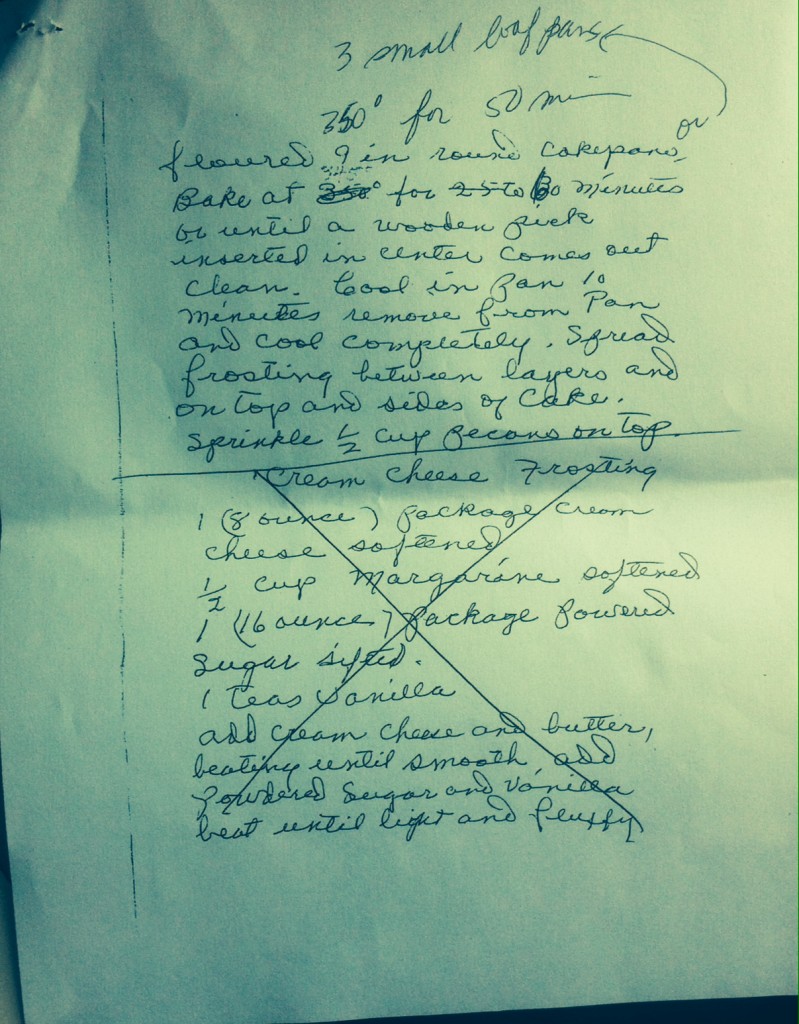 3 small loaf pans
350° for 50 min
or
floured 9 in round cakepans,
Bake at 350° for 25 to 60 minutes
or until a wooden pick
inserted in center comes out
clean. Cool in pan 10
minutes remove from Pan
and cool completely. Spread
frosting between layers and
on top and sides of Cake.
Sprinkle 1/2 cup pecans on top.
Cream Cheese Frosting
1 (8 ounce) package cream
cheese softened
1/2 cup Margarine softened
1 (16 ounce) package powered
Sugar sifted.
1 teas Vanilla
add cream cheese and butter,
beating until smooth add
powdered Sugar and Vanilla
beat until light and fluffy